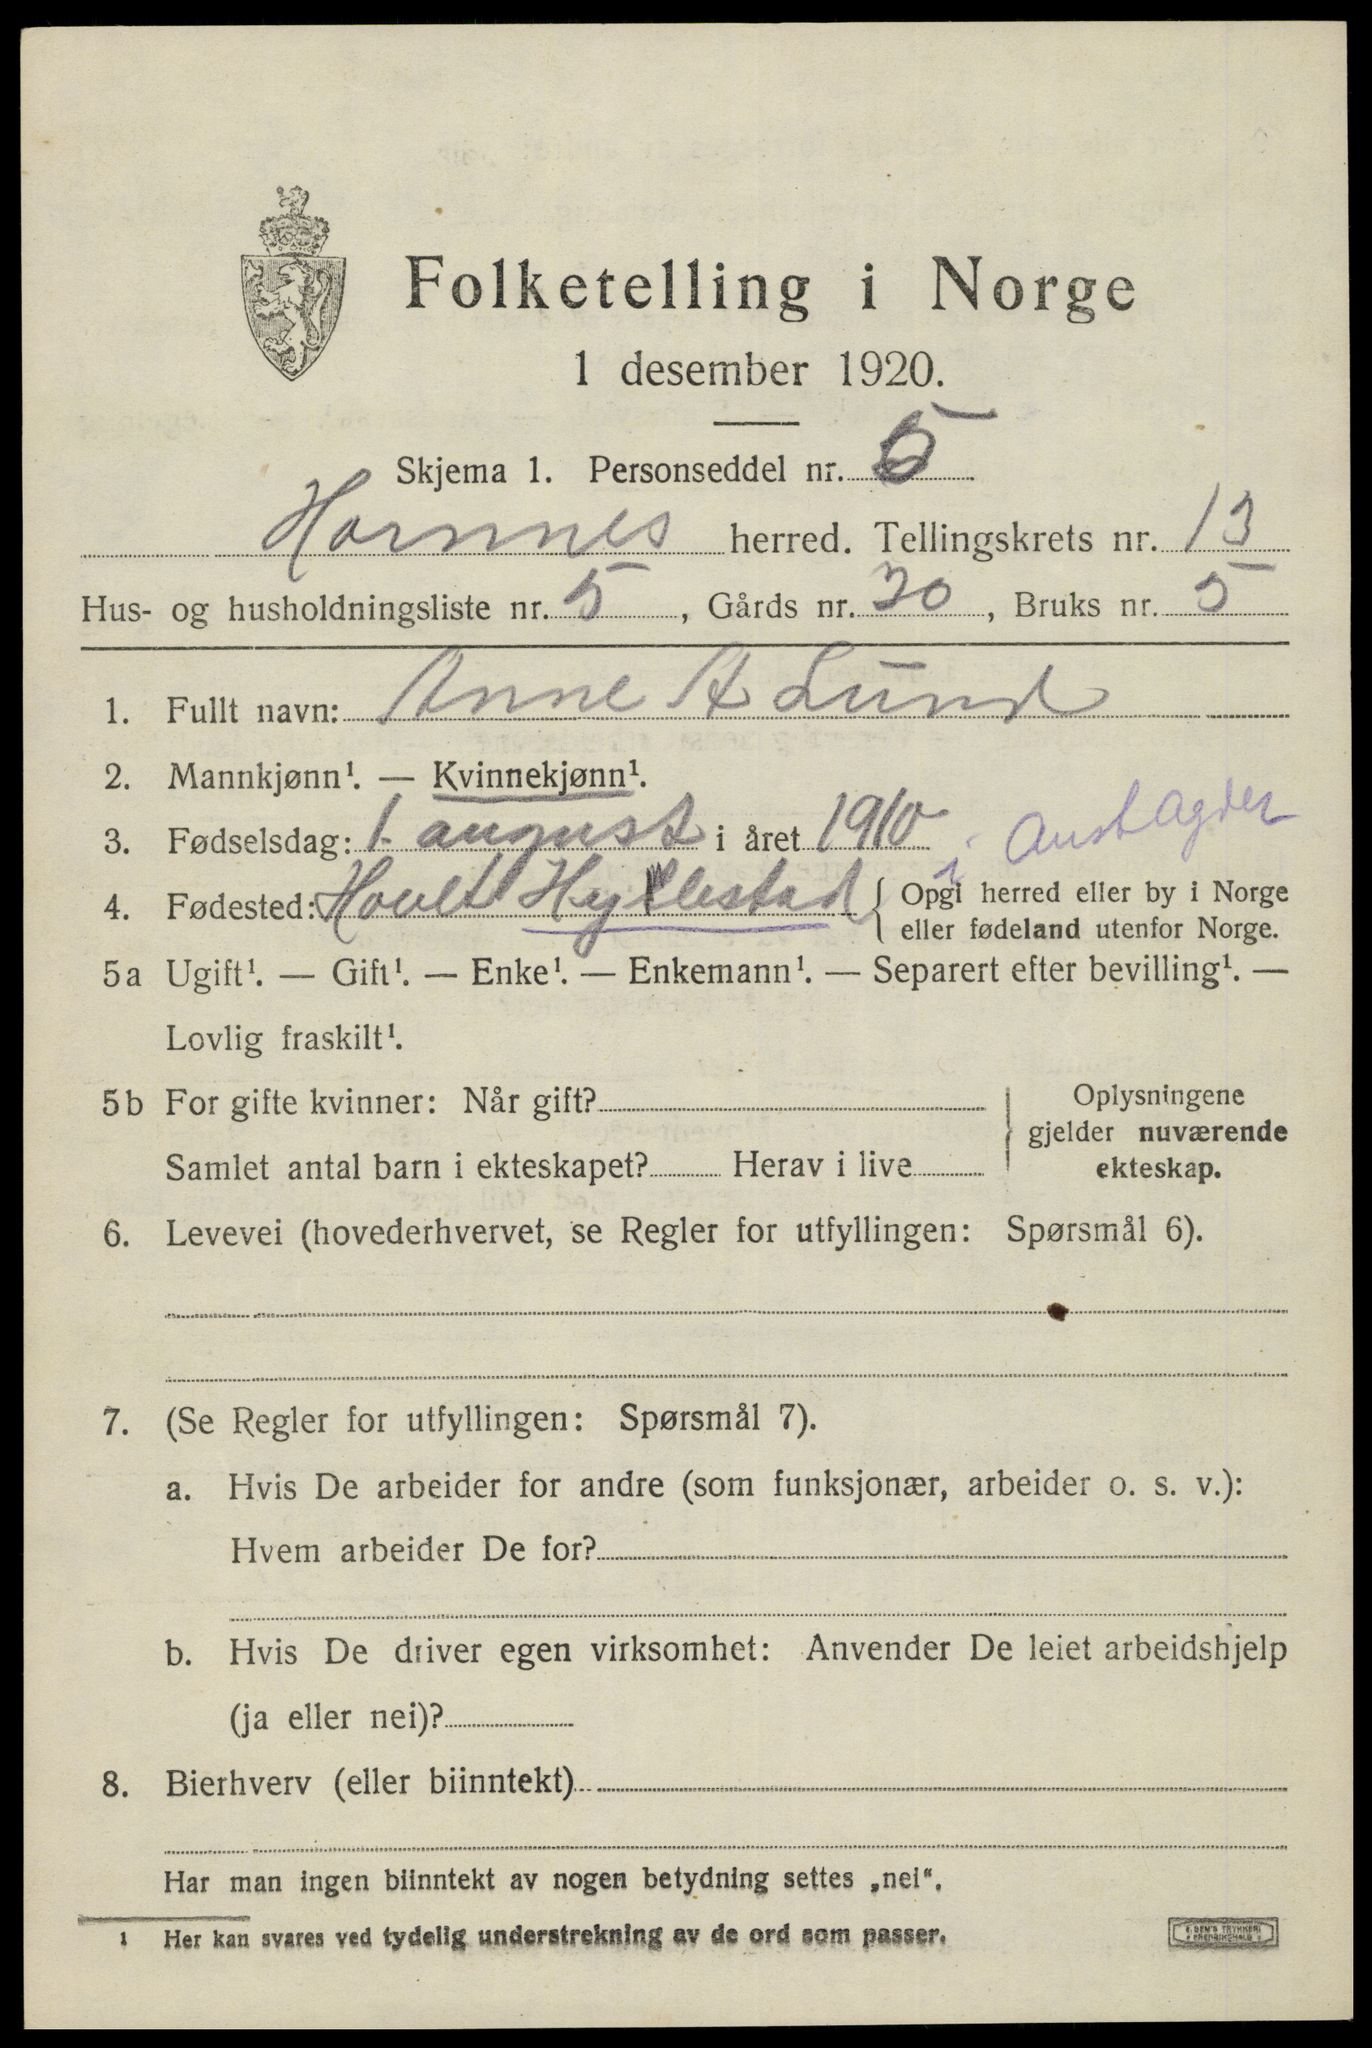 Folketelling i Norge
1 desember 1920.
Skjema 1. Personseddel nr. 5
Hornnes herred. Tellingskrets nr. 13
Hus- og husholdningsliste nr. 5, Gårds nr. 20, Bruks nr. 5
1. Fullt navn: Anne A Lund
2. Mannkjønn¹. — Kvinnekjønn¹.
3. Fødselsdag: 1. august i året 1910
i Aust Agder
4. Fødested: Hyllestad { Opgi herred eller by i Norge
eller fødeland utenfor Norge.
5a Ugift¹. — Gift¹. — Enke¹. — Enkemann¹. — Separert efter bevilling¹. —
Lovlig fraskilt¹.
5b For gifte kvinner: Når gift?
Samlet antal barn i ekteskapet? Herav i live
} Oplysningene
gjelder nuværende
ekteskap.
6. Levevei (hovederhvervet, se Regler for utfyllingen: Spørsmål 6).
7. (Se Regler for utfyllingen: Spørsmål 7).
a. Hvis De arbeider for andre (som funksjonær, arbeider o. s. v.):
Hvem arbeider De for?
b. Hvis De driver egen virksomhet: Anvender De leiet arbeidshjelp
(ja eller nei)?
8. Bierhverv (eller biinntekt)
Har man ingen biinntekt av nogen betydning settes „nei“.
1 Her kan svares ved tydelig understrekning av de ord som passer.